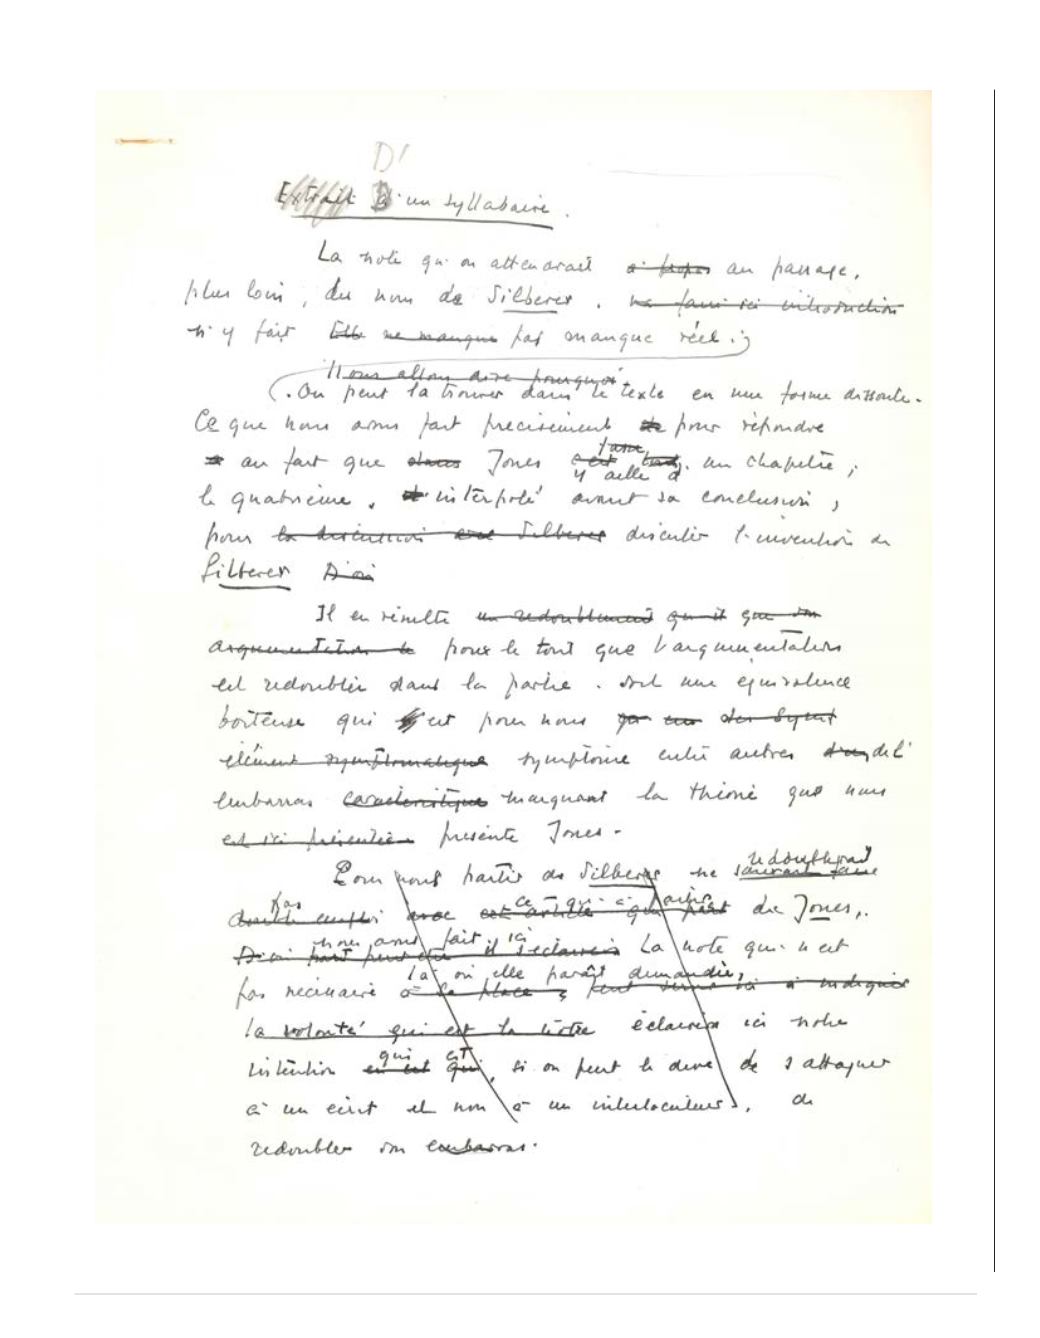 D'
Extrait D'un syllabaire.
La note qu'on attendrait à propos au passage,
plus loin, du nom de Silberer. ne fait ici introduction
n'y fait Elle ne manque pas manque réel.
Nous allons dire pourquoi
On peut la trouver dans le texte en une forme dissoute.
Ce que nous avons fait précisément pour répondre
au fait que dans Jones
fasse
y aille d'un chapitre,
le quatrième, interpolé avant sa conclusion,
pour la discussion avec Silberer discuter l'invention de
Silberer D'où
Il en résulte un redoublement qu'il que son
argumentation le pour le tout que l'argumentation
est redoublée dans la partie. soit une équivalence
boiteuse qui est pour nous
élément symptomatique symptôme entre autres de l'
embarras caractéristique marquant la théorie que nous
est ici présentée présente Jones.
redoublerait
Pour nous partir de Silberer ne saurait faire
pas ce qui à partir
double emploi avec cet article qui part de Jones,
nous avons fait ici
D'où peut être il s'éclaire La note qui n'est
là où elle paraît demandée,
pas nécessaire à sa place, peut servir ici à indiquer
la volonté qui est la nôtre éclairera ici notre
qui est
intention en est qui, si on peut le dire de s'attaquer
à un écrit et non à un interlocuteur, de
redoubler son embarras.